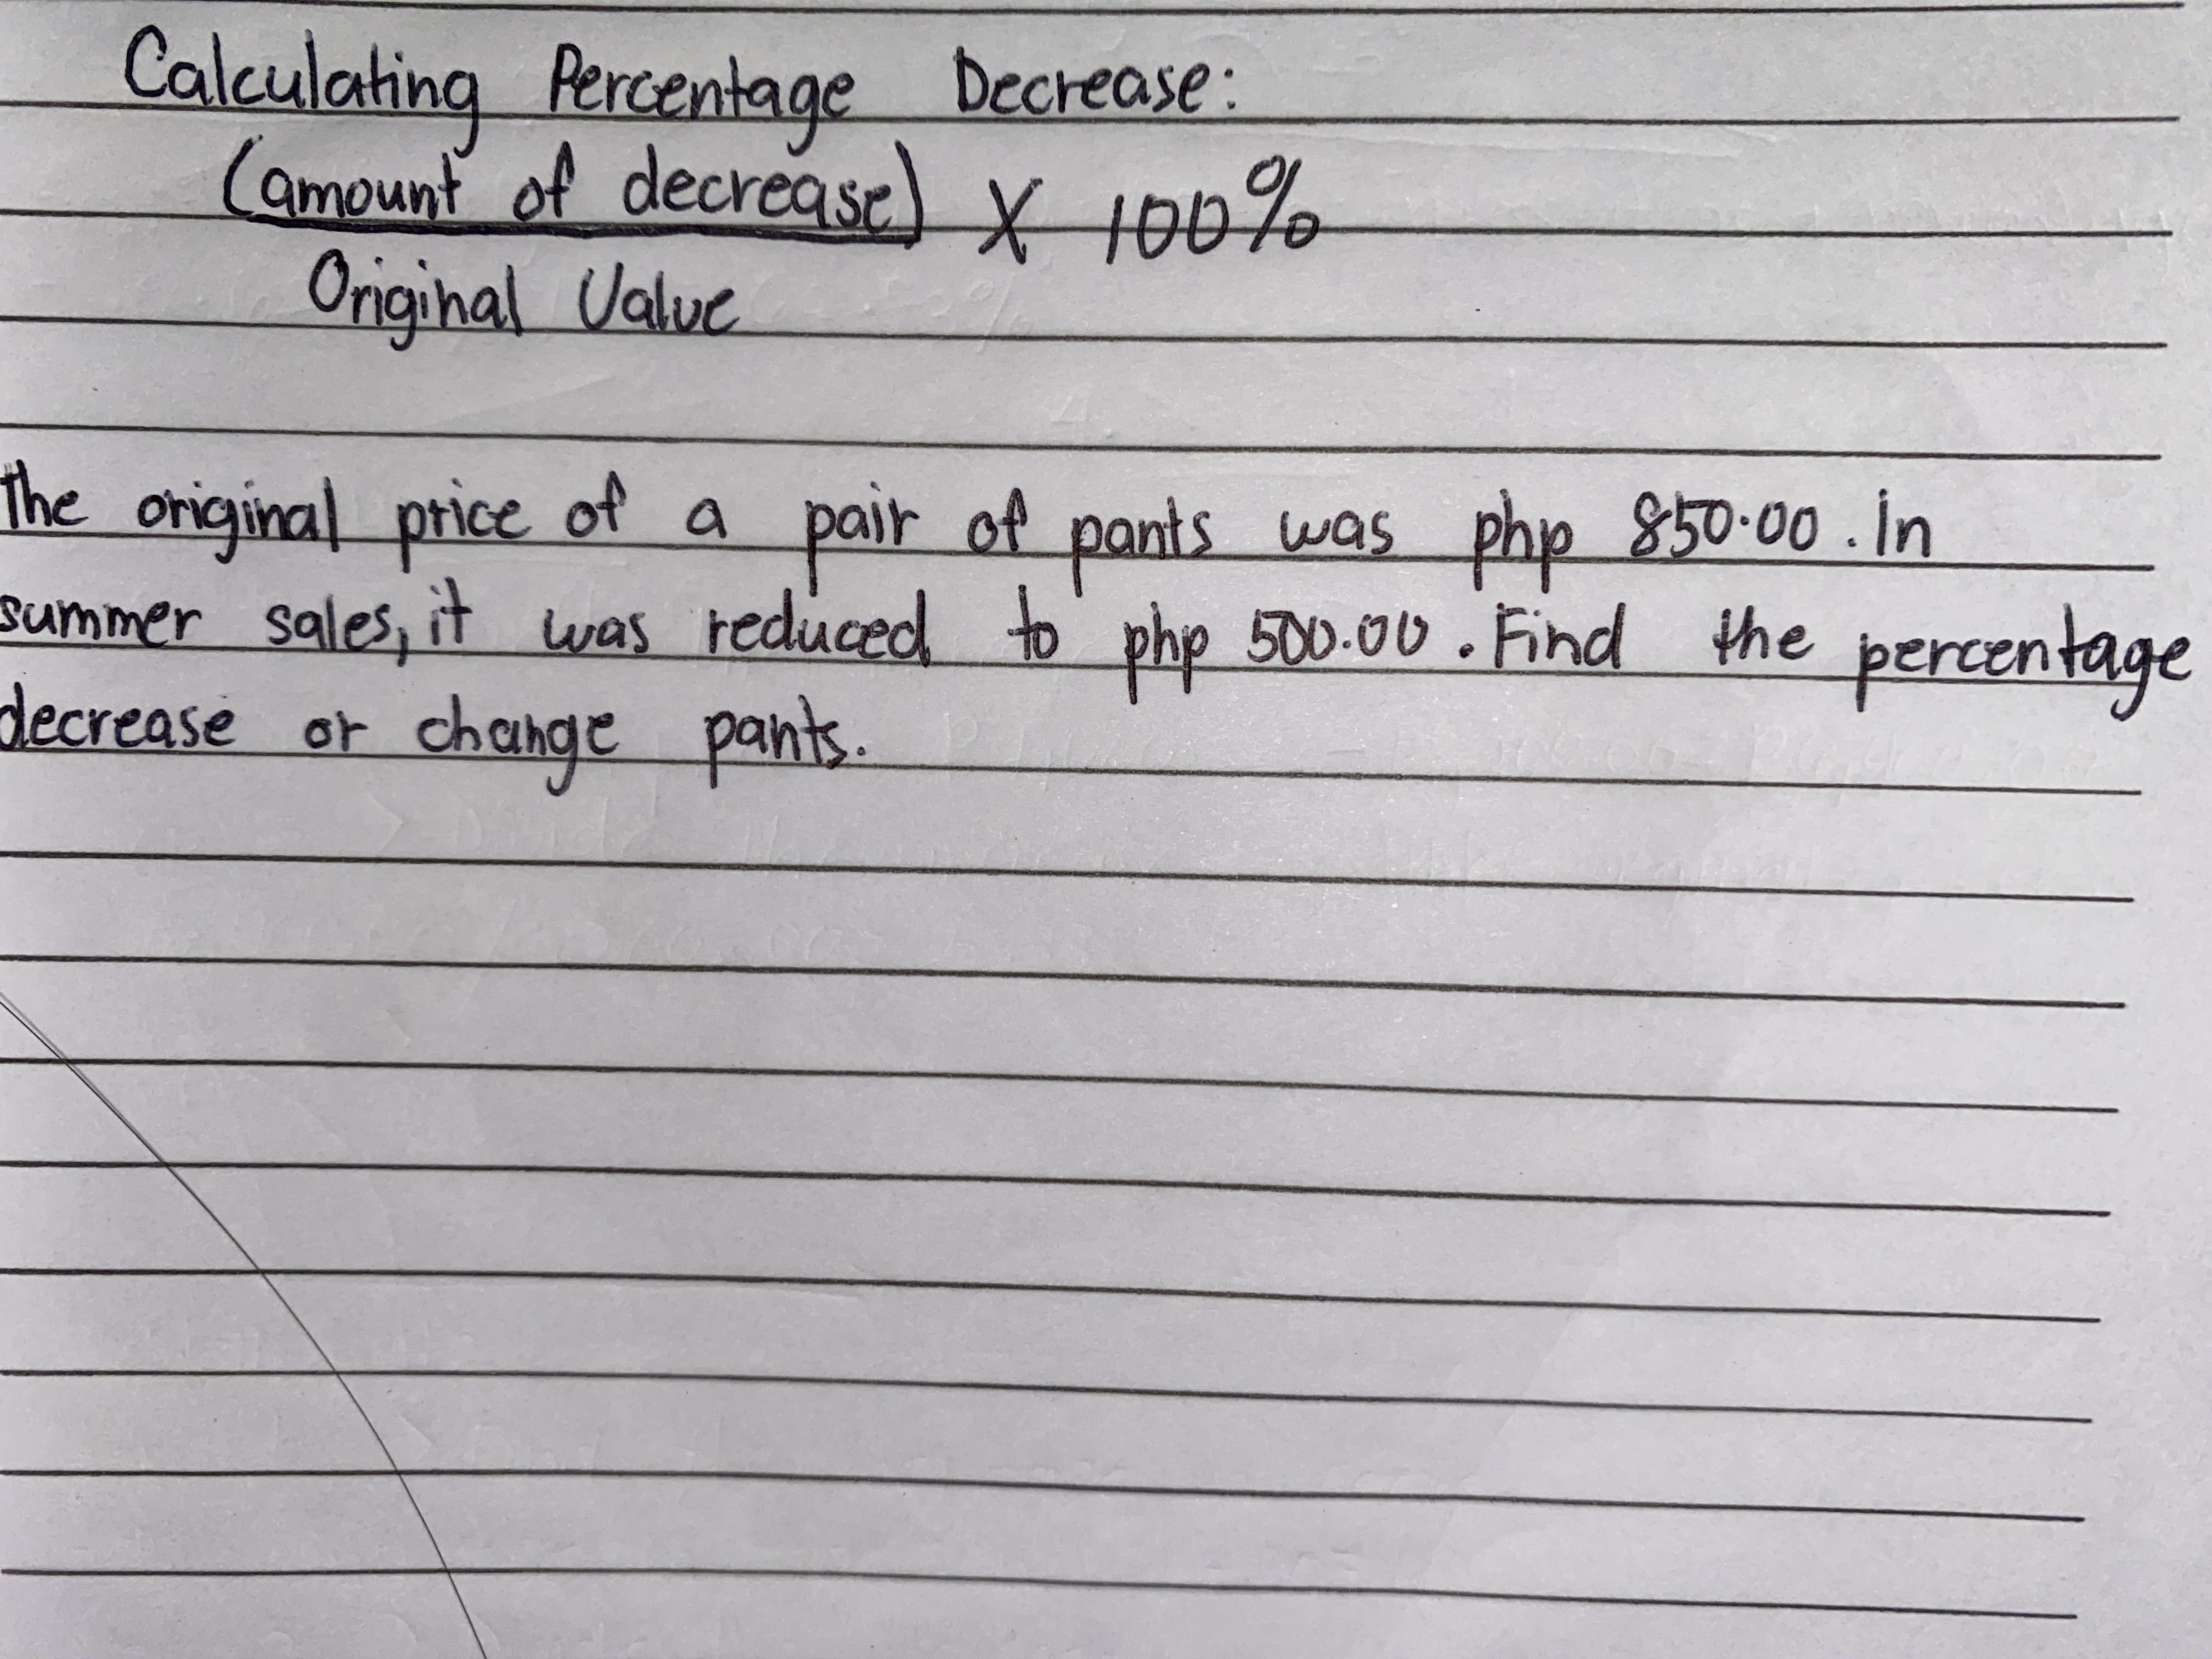 Calculating Percentage Decrease:
(amount of decrease) X 100%
Original Value
The original price of a pair of pants was php 850.00. In
summer sales, it was reduced to php 500.00. Find the percentage
decrease or change pants.